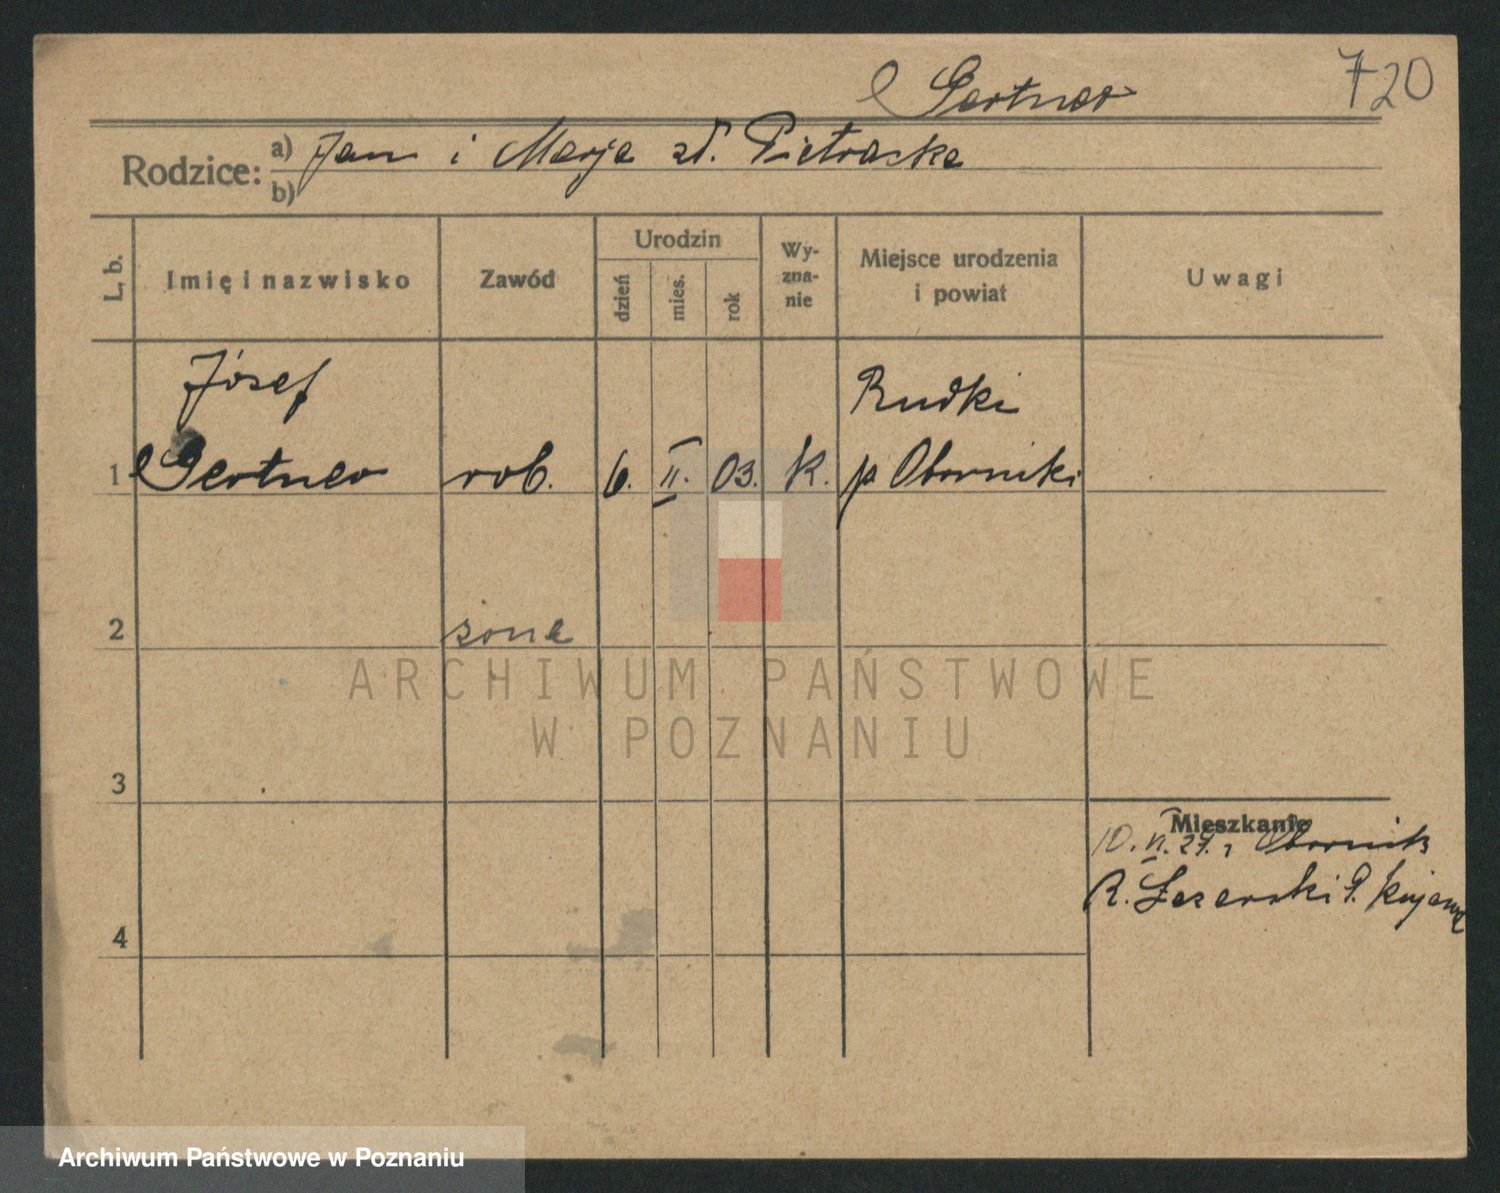 Gertner 720
Rodzice: a) Jan i Marja zd. Pietraska
b)
L. b. Imię i nazwisko Zawód Urodzin dzień mies. rok Wyznanie Miejsce urodzenia i powiat Uwagi
Józef Rudki
1 Gertner rob. 6. II. 03. K. p. Oborniki
2 żona
ARCHIWUM PAŃSTWOWE
W POZNANIU
3
Mieszkanie
10. VI. 27. z Obornik
R.
4
Archiwum Państwowe w Poznaniu